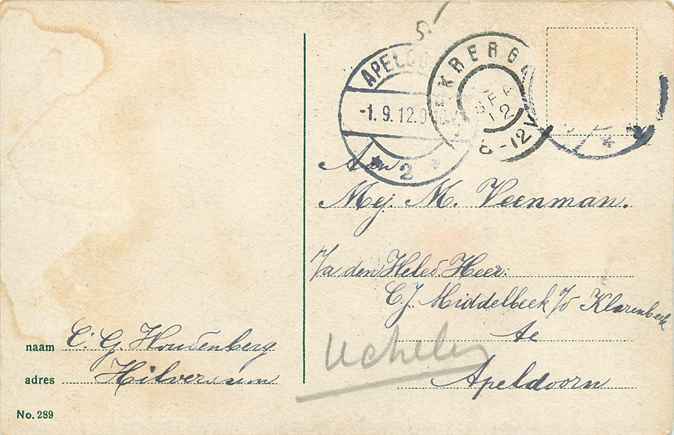 5
APELDO
-1.9.12.
2
KBERG
SEP
12
8-12V
Aan
Mej. M. Veenman.
p/a den Heled Heer:
C. J. Middelbeek p/o Klarenbeek
te
Ucheler
Apeldoorn
naam C. G. Woudenberg
adres Hilversum
No. 289